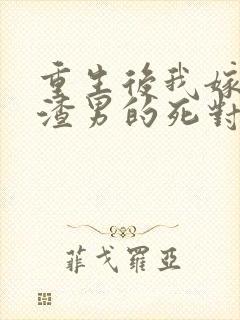 重生後我嫁
渣男的死對
菲戈羅亞